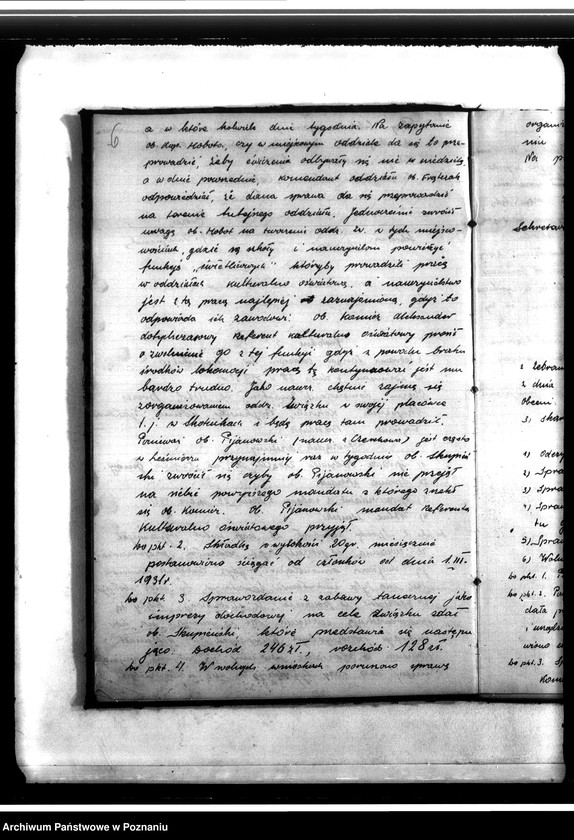 6
a w które kolwiek dnie tygodnia. Na zapytanie
ob. dyr. Hobota, czy w miejscowym oddziele da się to prze-
prowadzić, żeby ćwiczenia odbywały się nie w niedzielę,
a w dnie powszednie, komendant oddziału ob.
odpowiedział, że dana sprawa da się przeprowadzić
na terenie tutejszego oddziału. Jednocześnie zwrócił
uwagę ob. Hobot na tworzenie oddz. Zw. w tych miejsco-
wościach, gdzie są szkoły i nauczycielom powierzyć
funkcje "świetlicowych" którzyby prowadzili pracę
w oddziałach kulturalno oświatową, a nauczycielstwo
jest z tą pracą najlepiej zaznajomione, gdyż to
odpowiada ich zawodowi. Ob. Komicz Aleksander
dotychczasowy referent kulturalno oświatowy prosi
o zwolnienie go z tej funkcji gdyż z powodu braku
środków lokomocji pracę tę kontynuować jest mu
bardzo trudno. Jako naucz. chętnie zajmie się
zorganizowaniem oddz. Związku w swojej placówce
t. j. w Skokinkach i będę pracę tam prowadzić.
Ponieważ ob. Pijanowski (naucz. z ) jest często
w przynajmniej raz w tygodniu ob. Skupień
ski zwrócił się czyby ob. Pijanowski nie przejął
na siebie powyższego mandatu z którego zrzekł
się ob. Komicz. Ob. Pijanowski mandat Referenta
Kulturalno oświatowego przyjął.
Do pkt. 2. Składkę w wysokości 20 gr. miesięcznie
postanowiono ściągać od członków od dnia 1.III.
1931 r.
Do pkt. 3. Sprawozdanie z zabawy tanecznej jako
imprezy dochodowej na cele Związku zdał
ob. Skupieński, które przedstawia się następu
jąco. Dochód 246 zł., rozchód 128 zł.
Do pkt. 4. W wolnych wnioskach poruszono sprawę
organi
niu
Na p
Sekretar
z zebran
z dnia
obecni.
2) Spra
3) Spra
4) Spra
5) Spra
6) Woln
Do pkt. 1.
Do pkt. 2.
data p
i urządz
Do pkt. 3. Sp
Kom
Archiwum Państwowe w Poznaniu